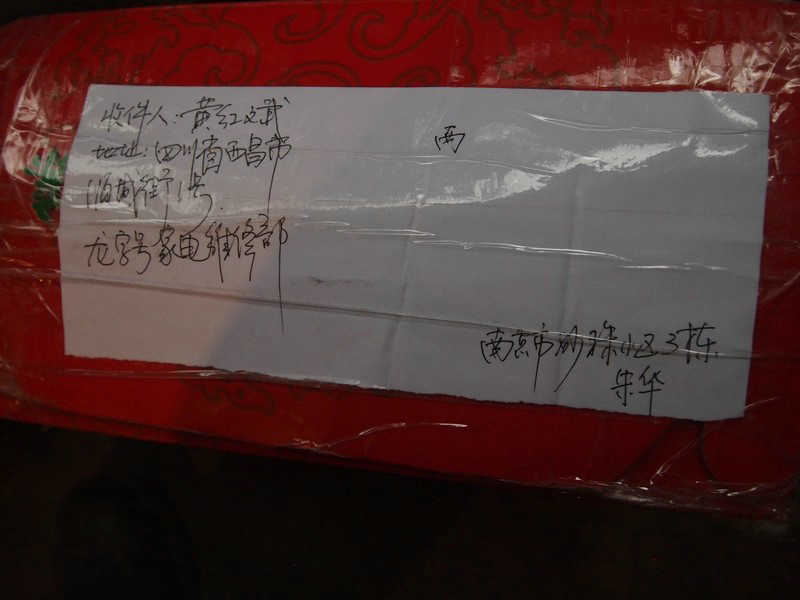 收件人:黄红斌
地址:四川省西昌市
顺城街1号
龙字号家电维修部
西
南京市砂珠小区3栋
朱华